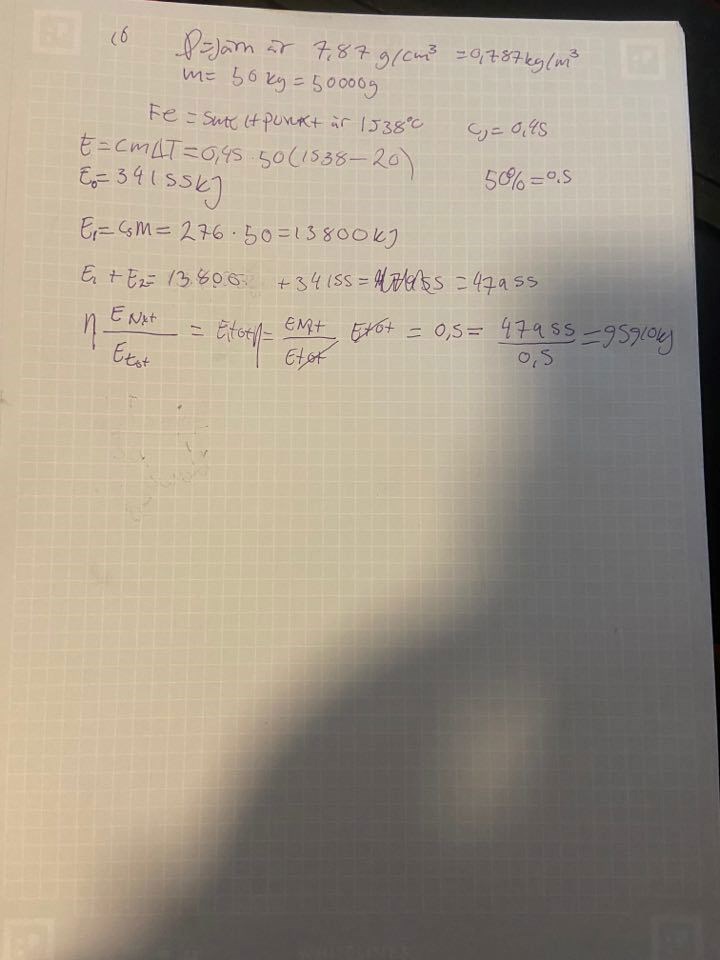 16
ρ = järn är 7,87 g/cm³ = 0,787 kg/m³
m = 50 kg = 50000g
Fe = smältpunkt är 1538°C cj = 0,45
E = cmΔT = 0,45 · 50(1538 - 20)
50% = 0,5
E₀ = 34155kJ
E₁ = csm = 276 · 50 = 13800kJ
E₁ + E₂ = 13800 + 34155 = = 47955
η ENyt/Etot = Etot η = ENyt/Etot Etot = 0,5 = 47955/0,5 = 95910kJ